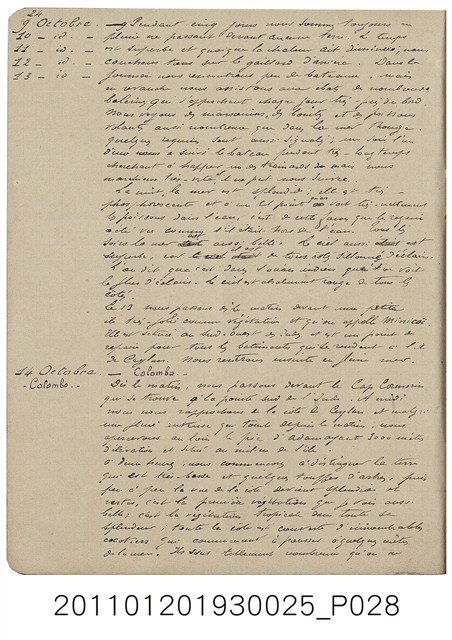 24
9 Octobre. — Pendant cinq jours nous sommes toujours en
10 — id — pleine mer passant devant aucune terre. Le temps
11 — id — est superbe et quoique la chaleur ait diminuée, nous
12 — id — couchons tous sur le gaillard d'arrière. Dans la
13 — id — journée nous rencontrons peu de bateaux, mais
en revanche nous assistons aux ébats de nombreuses
baleines qui s'approchent chaque jour très près du bord.
Nous voyons des marsouins, des et des poissons
volants aussi nombreux que dans la mer Rouge.
Quelques requins sont aussi signalés; un
a suivi le bateau pendant très longtemps
cherchant à happer un des mais nous
marchions très vite, il ne put nous suivre.
La nuit, la mer est splendide; elle est très
phosphorescente et c'est point voit très nettement
les poissons dans l'eau, c'est de cette façon que le requin
a été vu comme s'il était hors de l'eau. Tous les
soirs la mer est aussi belle. Le ciel aussi est
superbe, car de tous côtés sillonné d'éclairs.
L'on dit que c'est dans l'océan indien que l'on voit
le plus d'éclairs. Le ciel est absolument rouge de tous les
côtés.
Le 13 nous passons dès le matin devant une petite
île très jolie comme végétation et qu'on appelle Minicoï.
Elle est située au sud-ouest des indes et est un point de
repair pour tous les batiments qui se rendent à l'île
de Ceylan. Nous rentrons ensuite en pleine mer.
14 Octobre. — Colombo. —
- Colombo. - Dès le matin, nous passons devant le Cap Comorin
qui se trouve à la pointe sud de l'Inde. A midi
nous nous rapprochons de la côte de Ceylan, et malgré
une pluie qui tombe depuis le matin, nous
apercevons au loin le pic d'Adam ayant 3000 mètres
d'élévation et situé au milieu de l'île.
à deux heures, nous commençons à distinguer la terre
qui est très basse et quelques touffes d'arbres, puis
peu à peu la vue de la côte devient splendide et
certes, c'est la première végétation que je vois aussi
belle; c'est la végétation tropicale dans toute sa
splendeur; toute la côte est couverte d'innombrables
cocotiers qui commencent à pousser à quelques mètres
de la mer. Ils sont tellement nombreux qu'on ne
201101201930025_P028